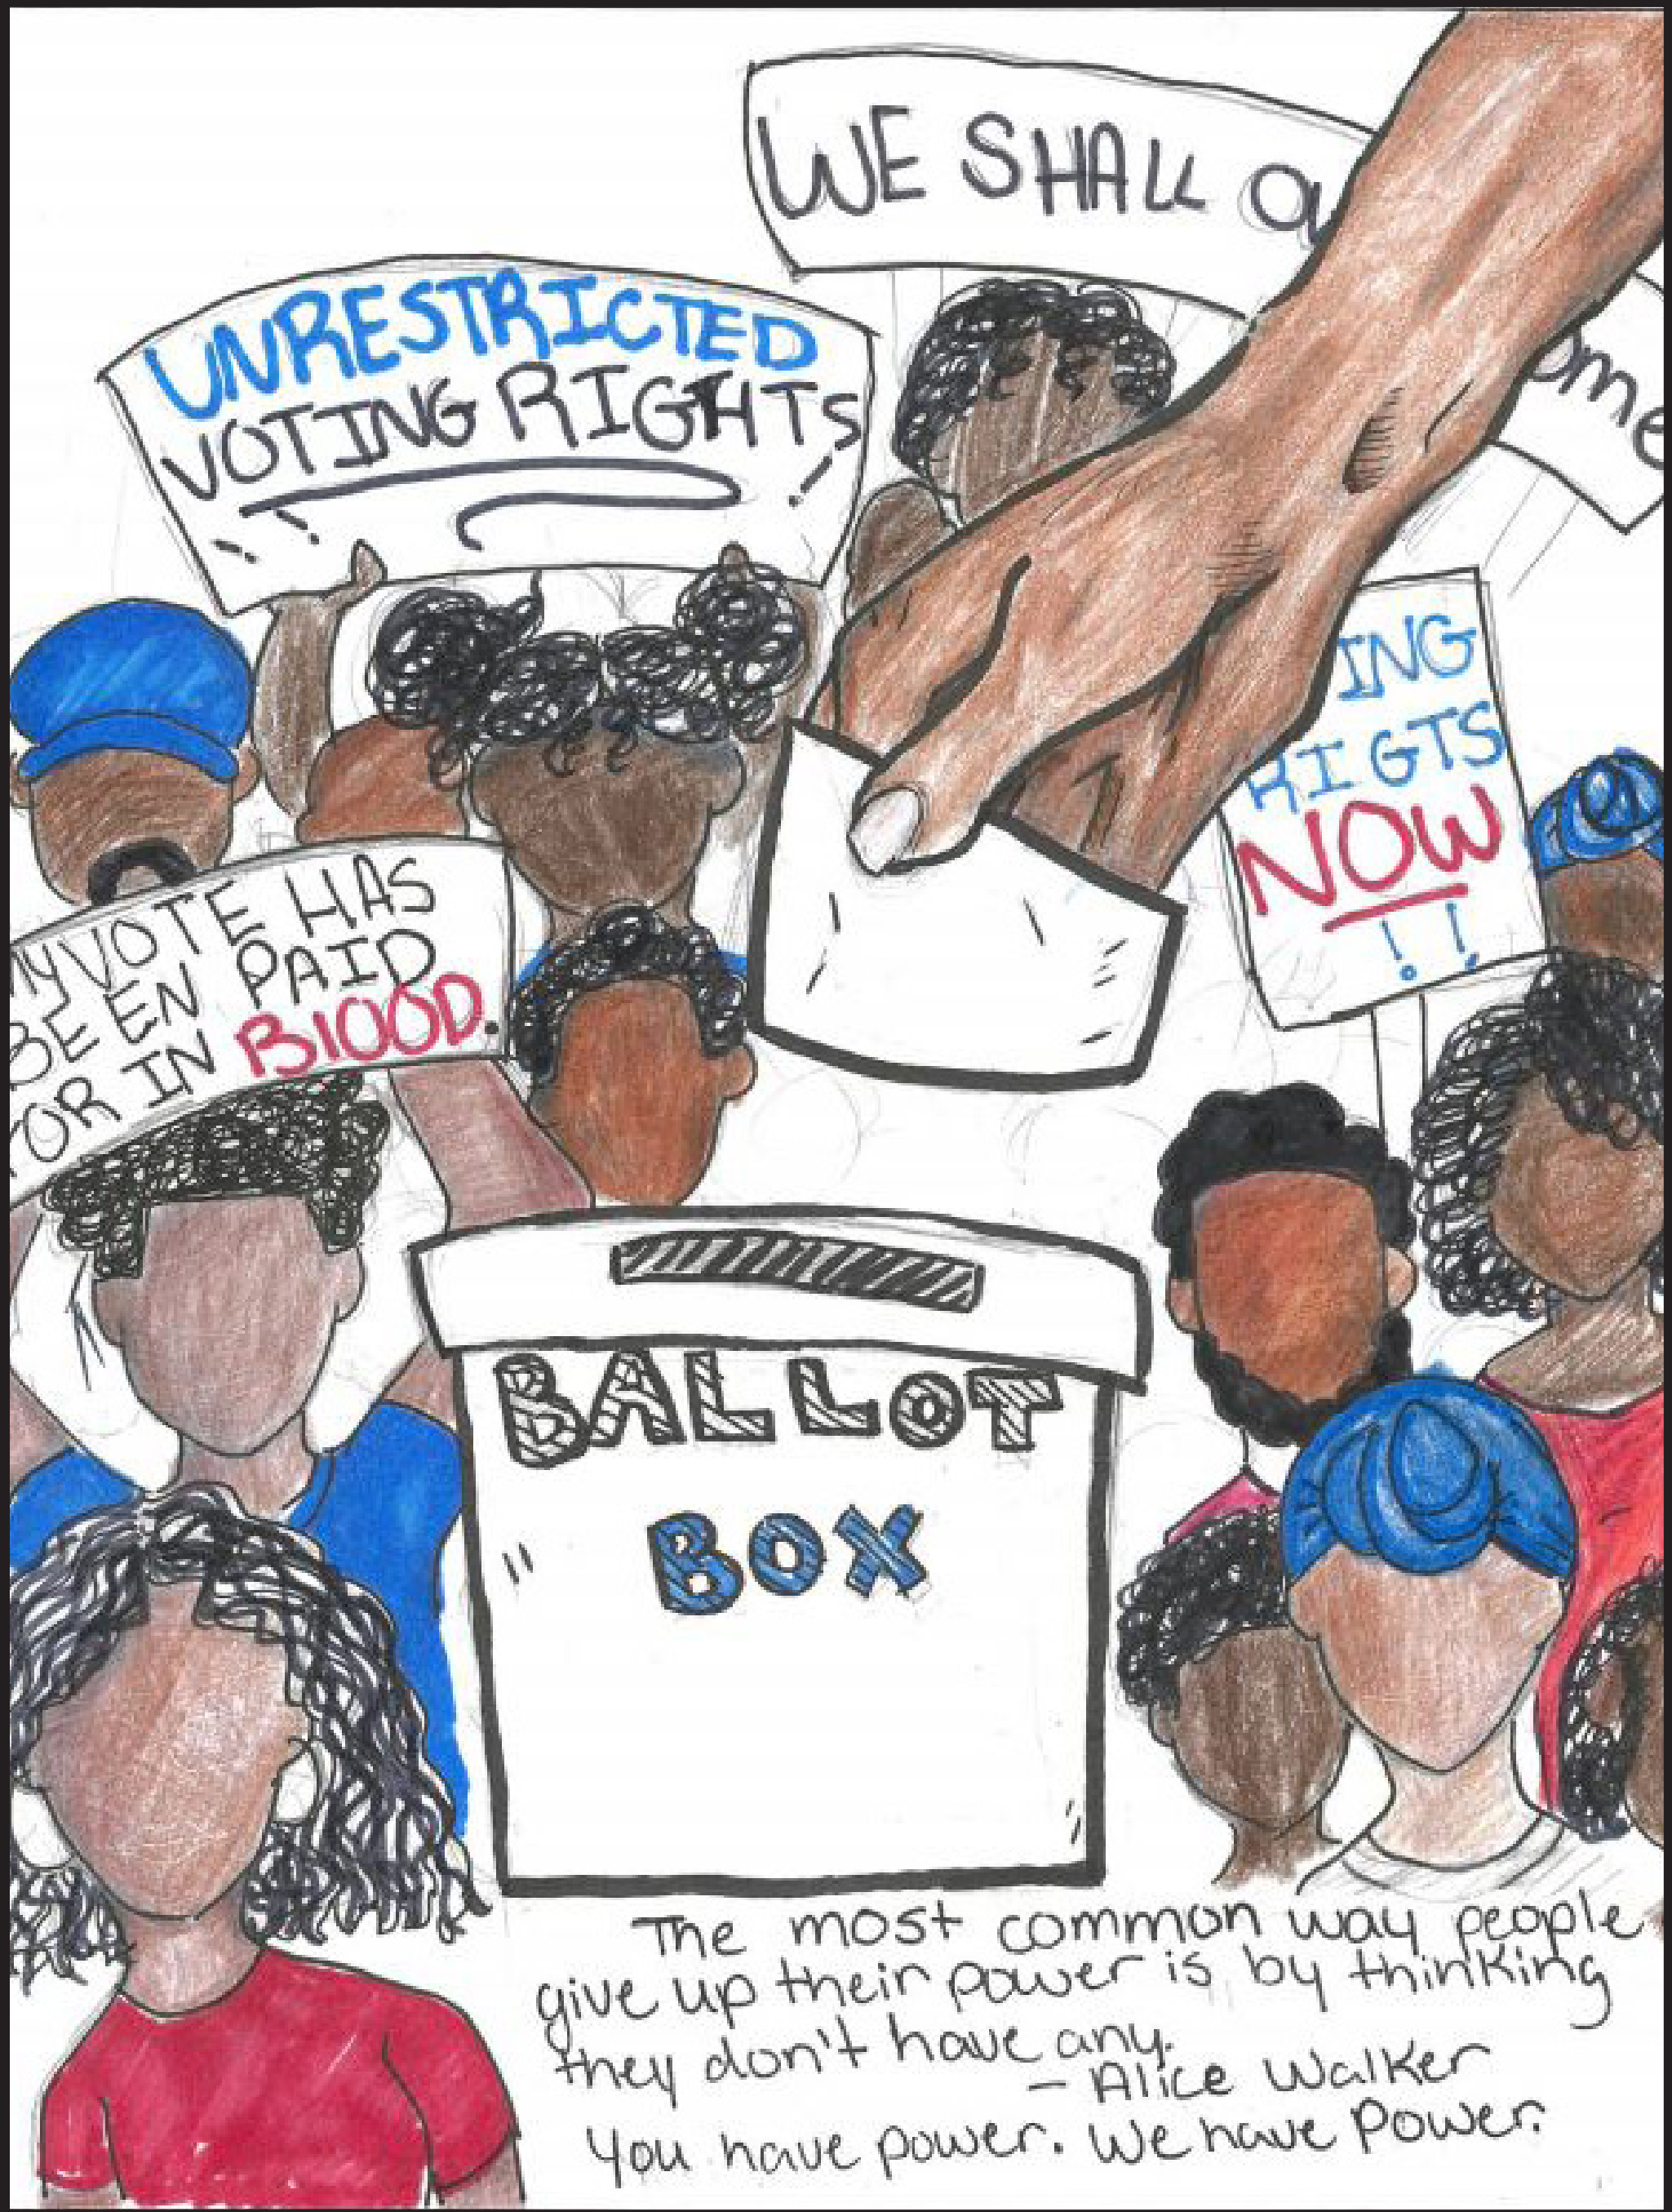 WE SHALL OV
ome
UNRESTRICTED
VOTING RIGHTS!
ING
RIGTS
NOW
!!
MY VOTE HAS
BEEN PAID
FOR IN BlOOD.
BALLOT
BOX
The most common way people
give up their power is by thinking
they don't have any.
- Alice Walker
You have power. We have Power.